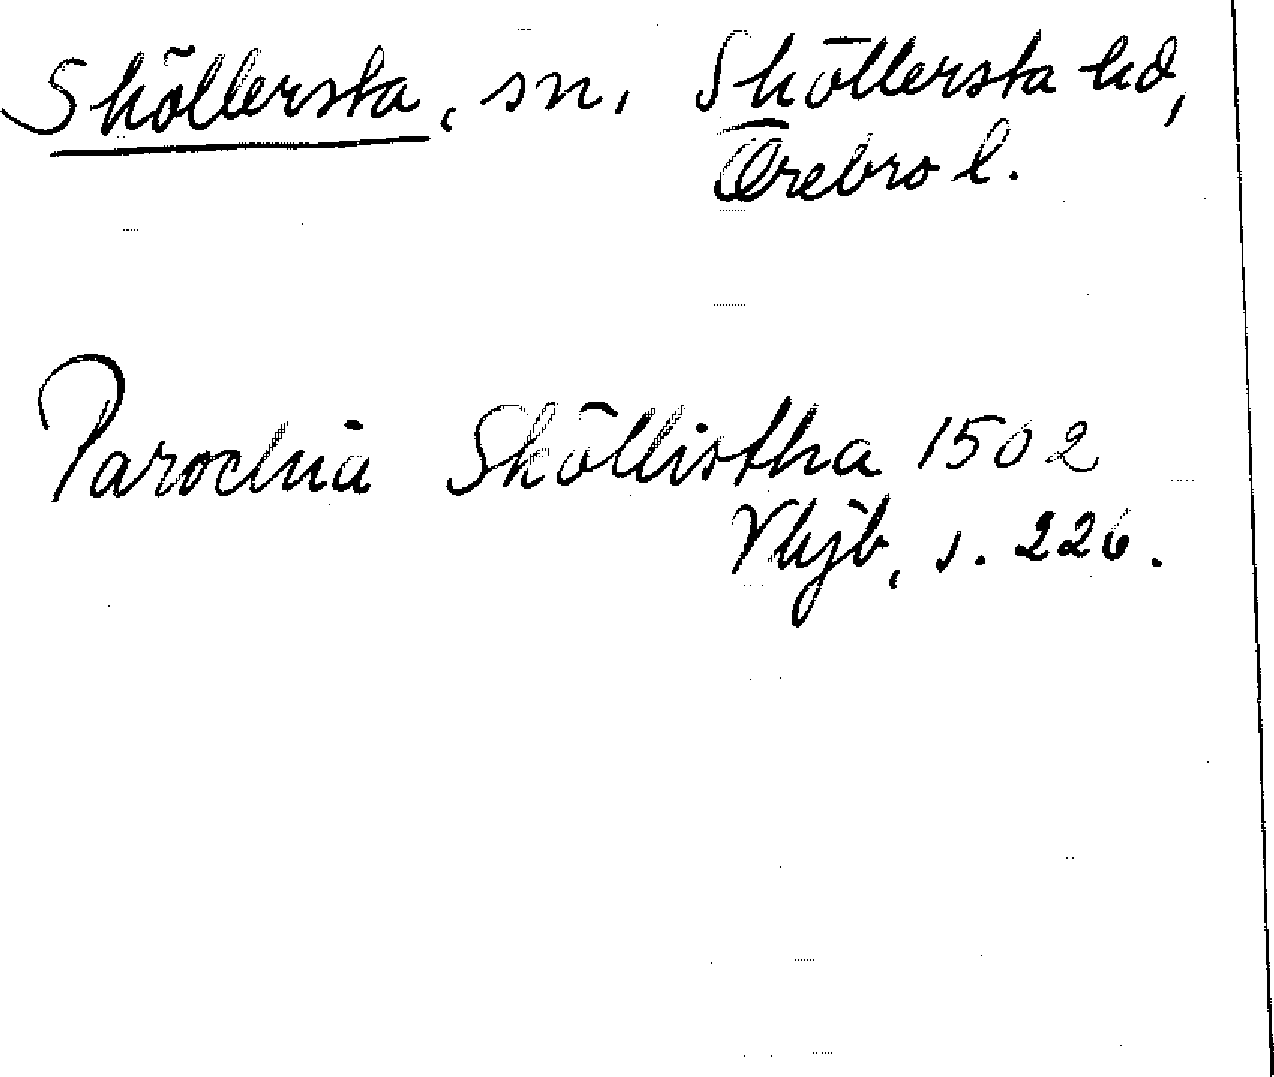 Sköllersta, sn, Sköllersta hd,
Örebro l.
Parochia Sköllistha 1502
Vkjb, s. 226.